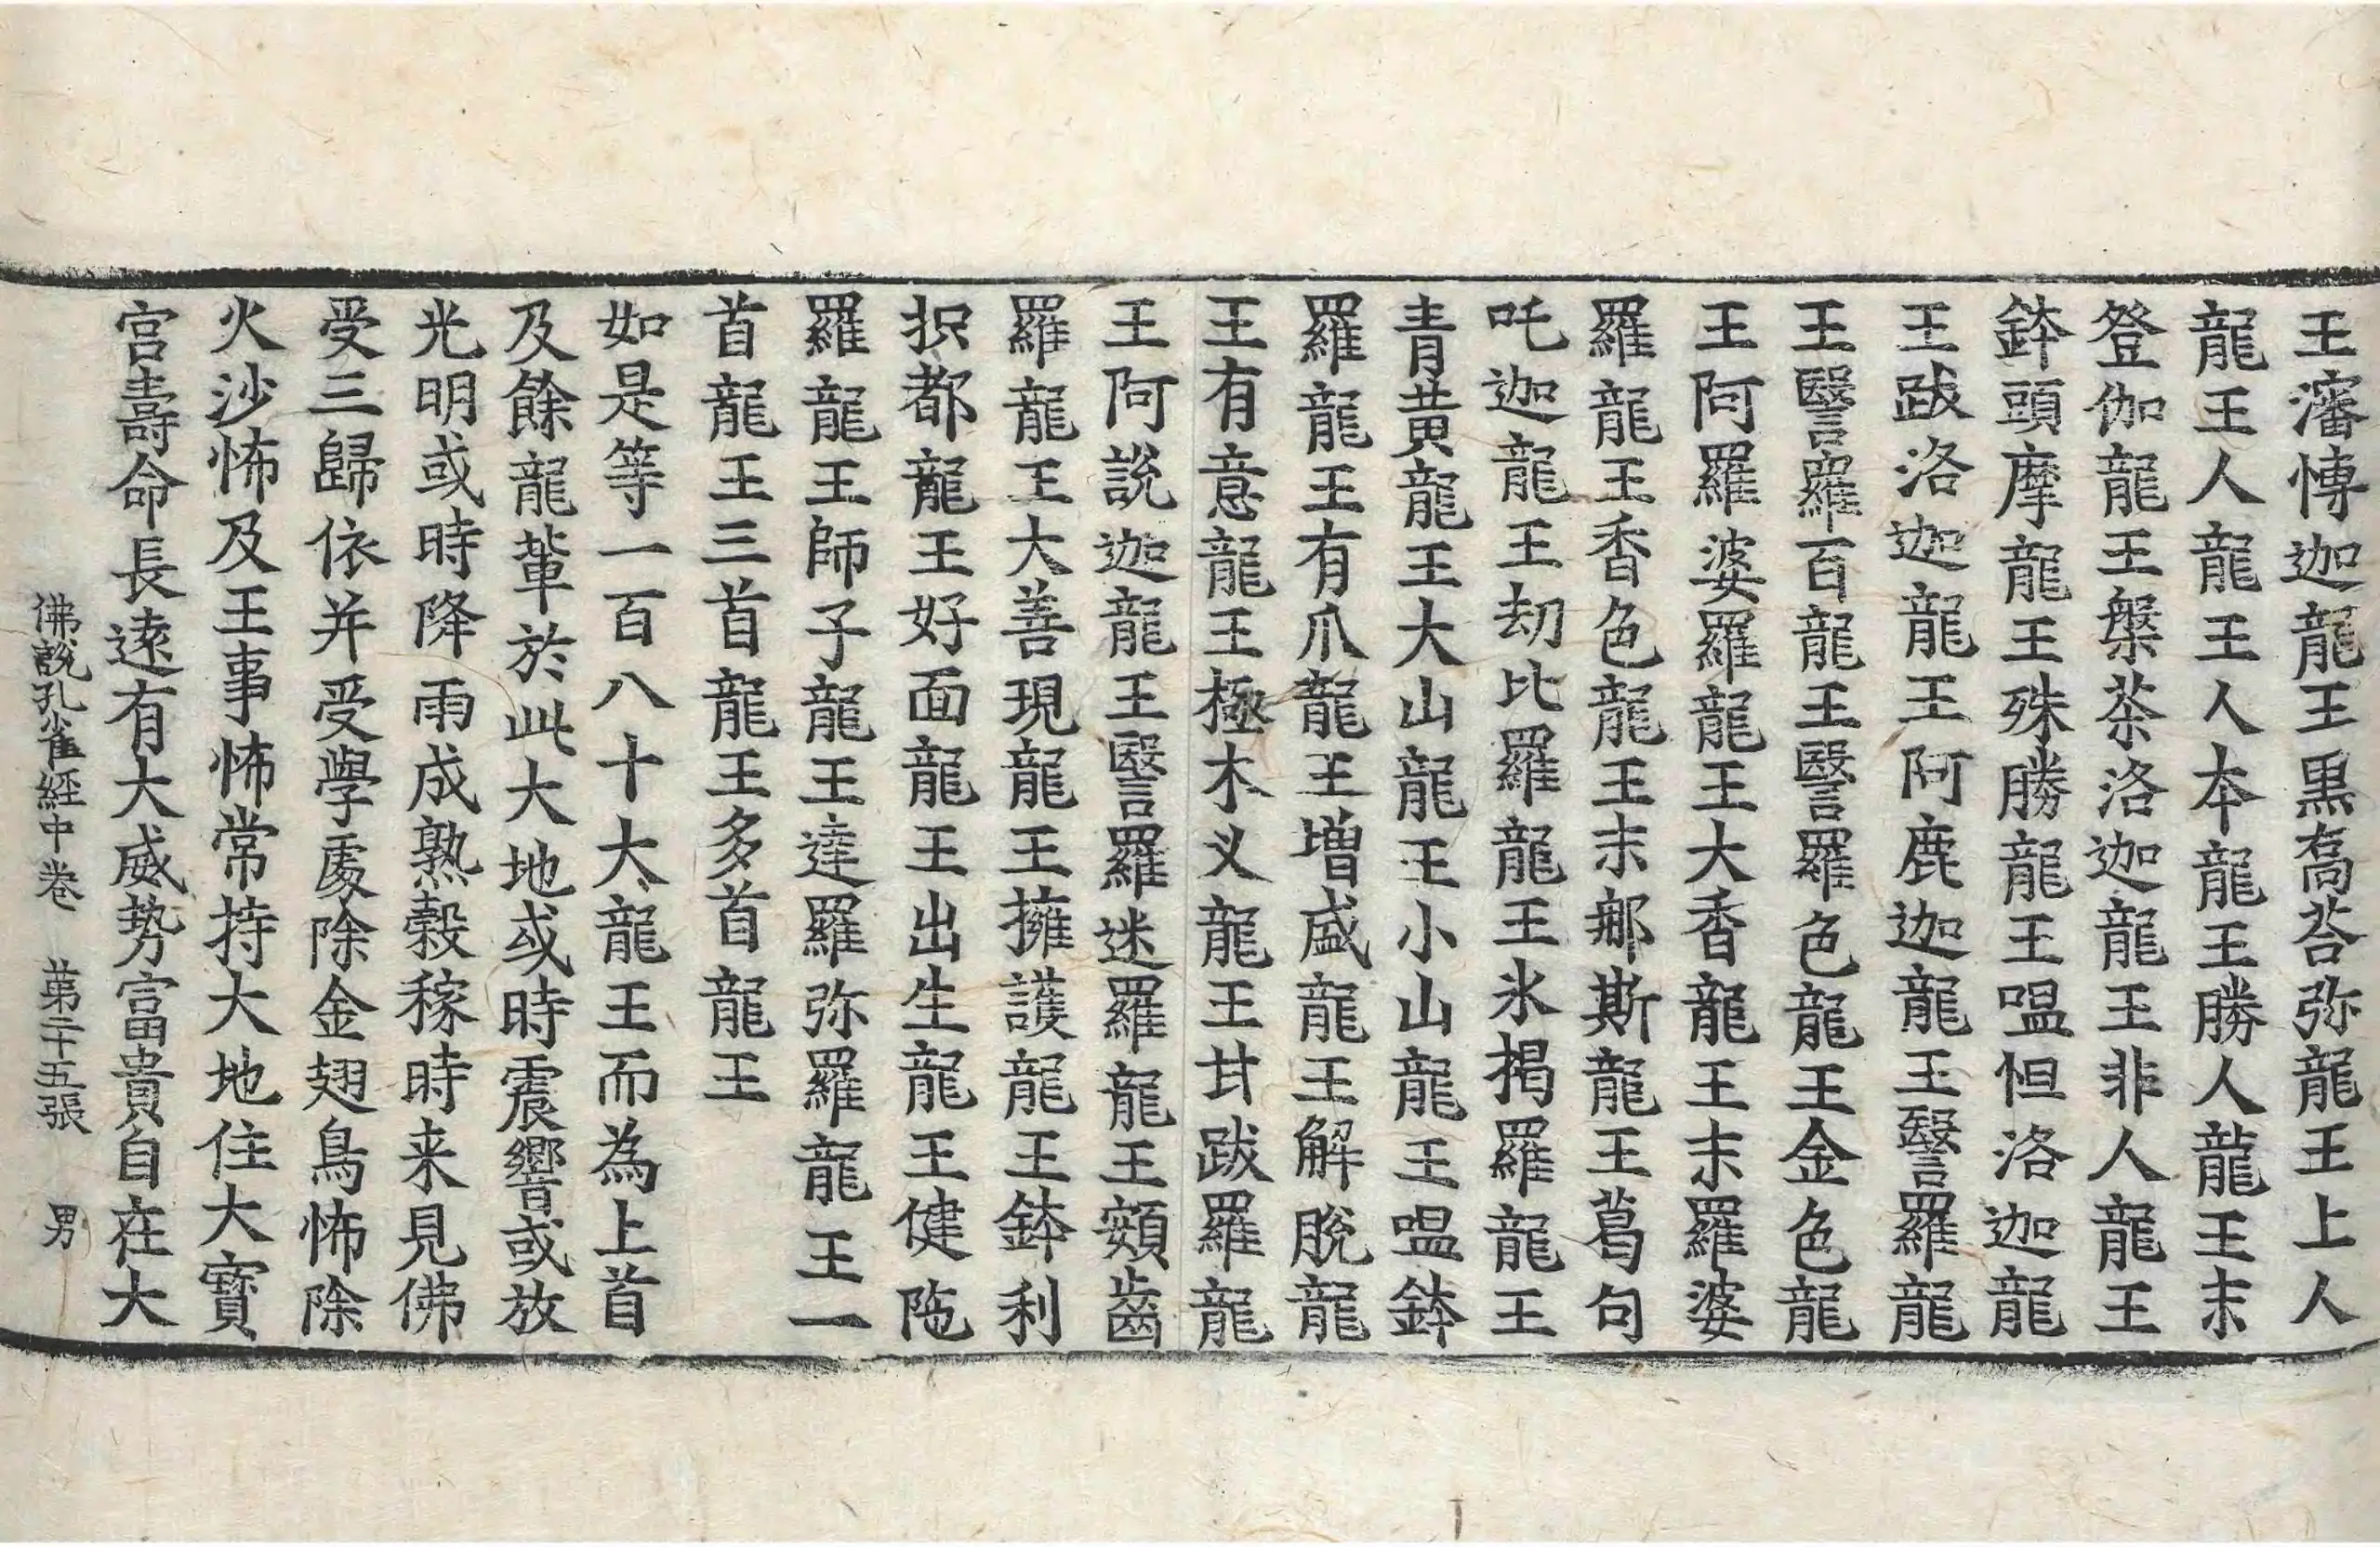 王瀋愽迦龍王黒髙荅弥龍王上人
龍王人龍王人本龍王勝人龍王末
登伽龍王槃荼洛迦龍王非人龍王
鉢頭摩龍王殊勝龍王嗢怛洛迦龍
王跋洛迦龍王阿鹿迦龍王瑿羅龍
王瑿羅百龍王瑿羅色龍王金色龍
王阿羅婆羅龍王大香龍王末羅婆
羅龍王香色龍王末䣕斯龍王葛句
吒迦龍王劫比羅龍王氷揭羅龍王
青黄龍王大山龍王小山龍王嗢鉢
羅龍王有爪龍王増盛龍王解脫龍
王有意龍王極木义龍王甘跋羅龍
王阿說迦龍王瑿羅迷羅龍王頞齒
羅龍王大善現龍王擁護龍王鉢利
抧都龍王好面龍王出生龍王健陁
羅龍王師子龍王達羅弥羅龍王一
首龍王三首龍王多首龍王
如是等一百八十大龍王而為上首
及餘龍軰於此大地或時震響或放
光明或時降雨成熟穀稼時来見佛
受三歸依并受學處除金翅鳥怖除
火沙怖及王事怖常持大地住大寳
宫壽命長遠有大威势富貴自在大
佛說孔雀經中卷　苐二十五張　男